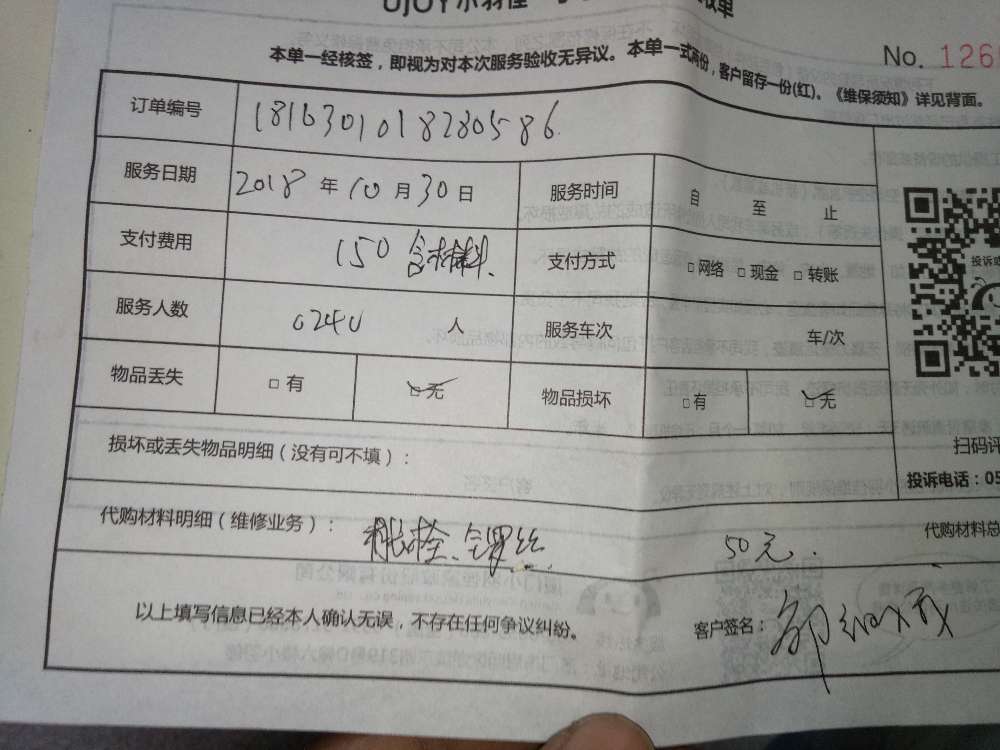 UJOY小羽佳
No. 126
本单一经核签，即视为对本次服务验收无异议。本单一式两份，客户留存一份(红)。《维保须知》详见背面。
订单编号 1816301018280586
服务日期 2018 年 10 月 30 日 服务时间 自 至 止
支付费用 150 含材辅料. 支付方式 □网络 □现金 □转账
投诉或
服务人数 0240 人 服务车次 车/次
物品丢失 □有 □无 物品损坏 □有 □无
扫码评
损坏或丢失物品明细（没有可不填）：
投诉电话：05
代购材料明细（维修业务）： 50元. 代购材料总
以上填写信息已经本人确认无误，不存在任何争议纠纷。 客户签名：